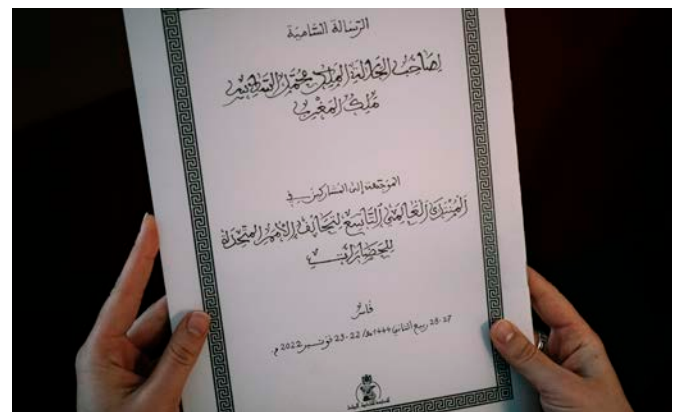 الرسالة السامية
لصاحب الجلالة الملك محمد السادس
ملك المغرب
الموجهة إلى المشاركين في
المنتدى العالمي التاسع لتحالف الأمم المتحدة
للحضارات
فاس
27-28 ربيع الثاني 1444هـ/ 22-23 نونبر 2022م.